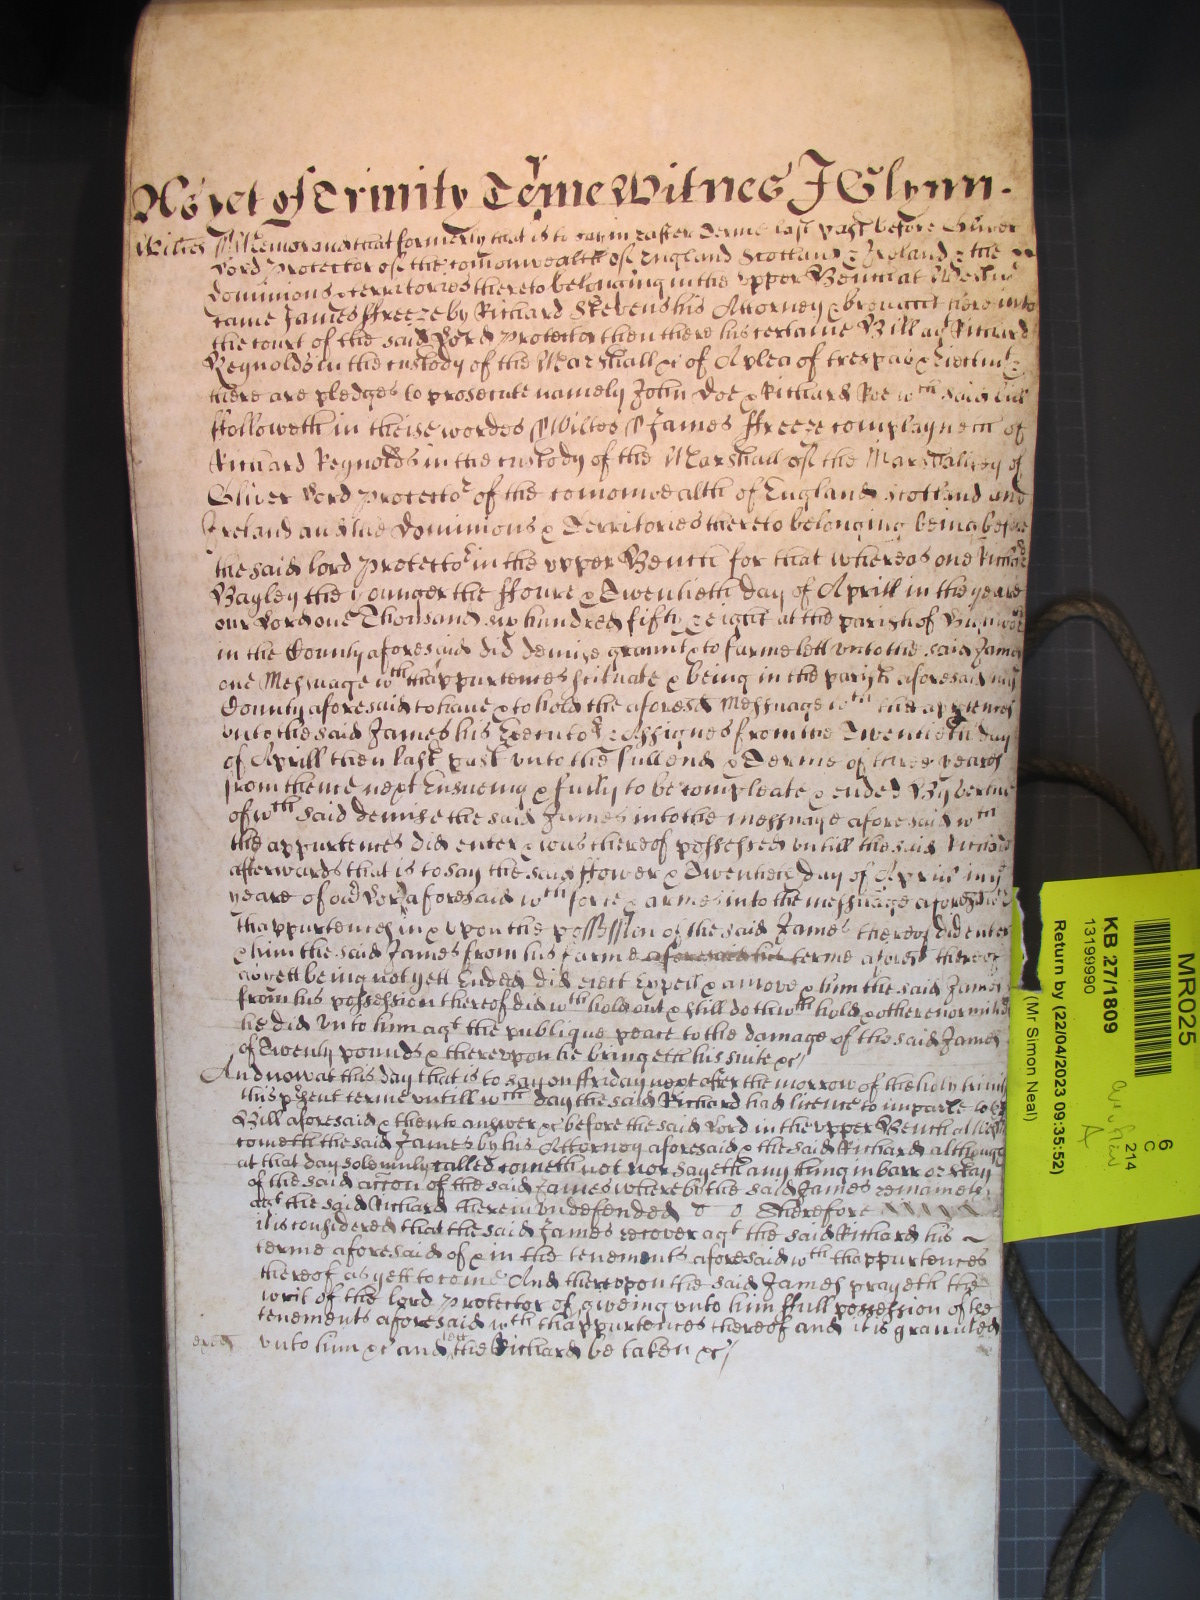 As yet of Trinity Terme Witnes J Glynn.
Wiltes ss Memorand that formerly that is to say in easter Terme last past before Oliver
Lord Protector of the comonwealth of England Scotland & Ireland & the
dominions & territories thereto belonging in the upper Bench at Westmr
came James ffreeze by Richard Stevens his Attorney & brought here into
the court of the said Lord Protector then there his certaine Bill agt Richard
Reynolds in the custody of the Marshall &c of A plea of trespas & eiectmt &
there are pledges to prosecute namely John Doe & Richard Roe wch said bill
ffolloweth in theise wordes ss Wiltes ss James ffreeze complayneth of
Richard Reynolds in the custody of the Marshall of the Marshallsey of
Oliver Lord Protector of the comonwealth of England Scotland and
Ireland and the Dominions & Territories thereto belonging being before
the said lord Protector in the upper Bench for that whereas one Richard
Bayley the younger the ffoure & Twentieth day of Aprill in the yeare
our Lord one Thousand six hundred fifty & eight at the parish of
in the County aforesaid did demise graunt & to farme lett unto the said James
one Messuage wth thappurtences scituate & being in the parish aforesaid in ye
County aforesaid to have & to hold the aforesd Messuage wth the apptences
unto the said James his Executors & Assignes from the Twentieth day
of Aprill then last past unto the full end & Terme of three yeares
from thence next Ensueing & fully to be compleate & ended By vertue
of wch said demise the said James into the messuage aforesaid wth
the appurtences did enter & was thereof possessed untill the said Richard
afterwards that is to say the said ffower & Twentieth day of Aprill in ye
yeare of our Lord aforesaid wth force & armes into the messuage aforesd wth
thappurtences in & upon the possession of the said James thereof did enter
& him the said James from his farme aforesaid his terme aforesd thereof
as yett being not yett Ended did eiect Expell & amove & him the said James
from his possession thereof did wth hold out & still doth wth hold & other enormities
he did unto him agt the publique peace to the damage of the said James
of Twenty pounds & thereupon he bringeth his suite &c/
And now at this day that is to say on ffriday next after the morrow of the holy trinity
this psent terme untill wch day the said Richard had licence to imparle to ye
Bill aforesaid & then to answer &c before the said Lord in the upper Bench at Westmr
cometh the said James by his Attorney aforesaid & the said Richard although
at that day solemnly called cometh not nor sayeth any thing in barr or stay
of the said accon of the said James whereby the said James remaineth
agt the said Richard therein undefended Therefore
it is considered that the said James recover agt the said Richard his
terme aforesaid of & in the tenements aforesaid wth thappurtences
thereof as yett to come And thereupon the said James prayeth the
writ of the lord Protector of giveing unto him ffull possession of the
tenements aforesaid wth thappurtences thereof and it is graunted
unto him &c and lett the Richard be taken &c/
MR025
KB 27/1809
13199990
Return by (22/04/2023 09:35:52)
(Mr Simon Neal)
6
C
214
A